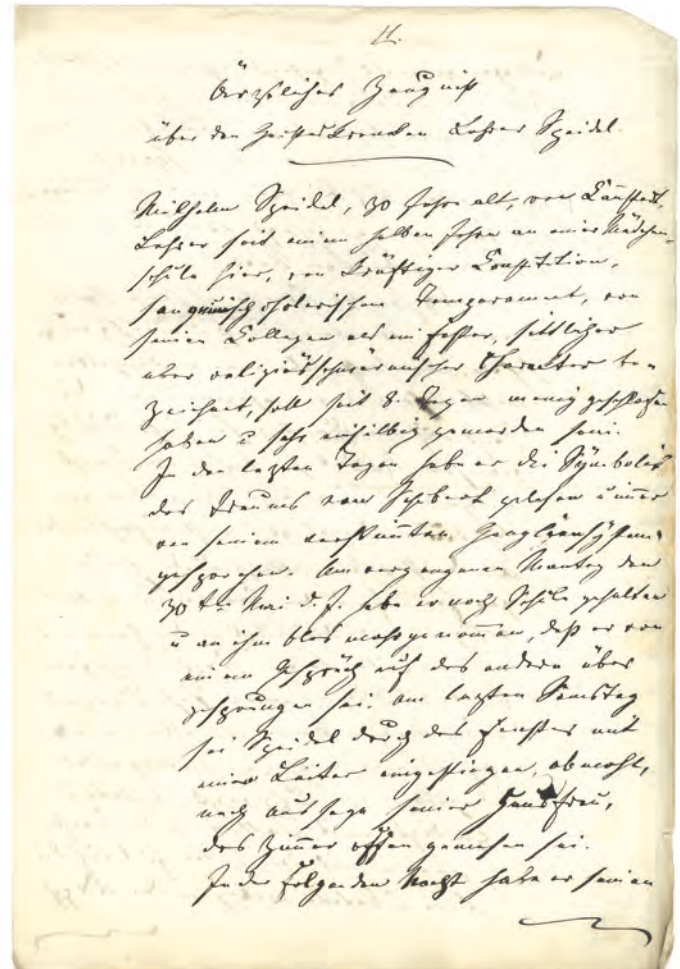 11.
Ärztliches Zeugniß
über den Geisteskranken Lehrer Speidel.
Wilhelm Speidel, 30 Jahre alt, von Cannstatt,
Lehrer seit einem halben Jahre an einer Mädchen-
schule hier, von kräftiger Constitution,
sanguinisch cholerischem Temperament, von
seinen Collegen als ein sittlicher
aber religiös schwärmerischer Charakter be-
zeichnet, soll seit 8 Tagen wenig geschlafen
haben u sehr einsilbig geworden sein.
In den lezten Tagen habe er die Symbolik
des Traums von Schubert gelesen u immer
von seinem Gangliensystem
gesprochen. Am vergangenen Montag den
30ten Mai d. J. habe er noch Schule gehalten
u an ihm blos wahrgenommen, daß er von
einem Gespräch auf das andere über
gesprungen sei. Am lezten Samstag
sei Speidel durch das Fenster mit
einer Leiter eingestiegen, obwohl,
nach Aussage seiner Hausfrau,
das Zimmer offen gewesen sei.
In der folgenden Nacht habe er seinen